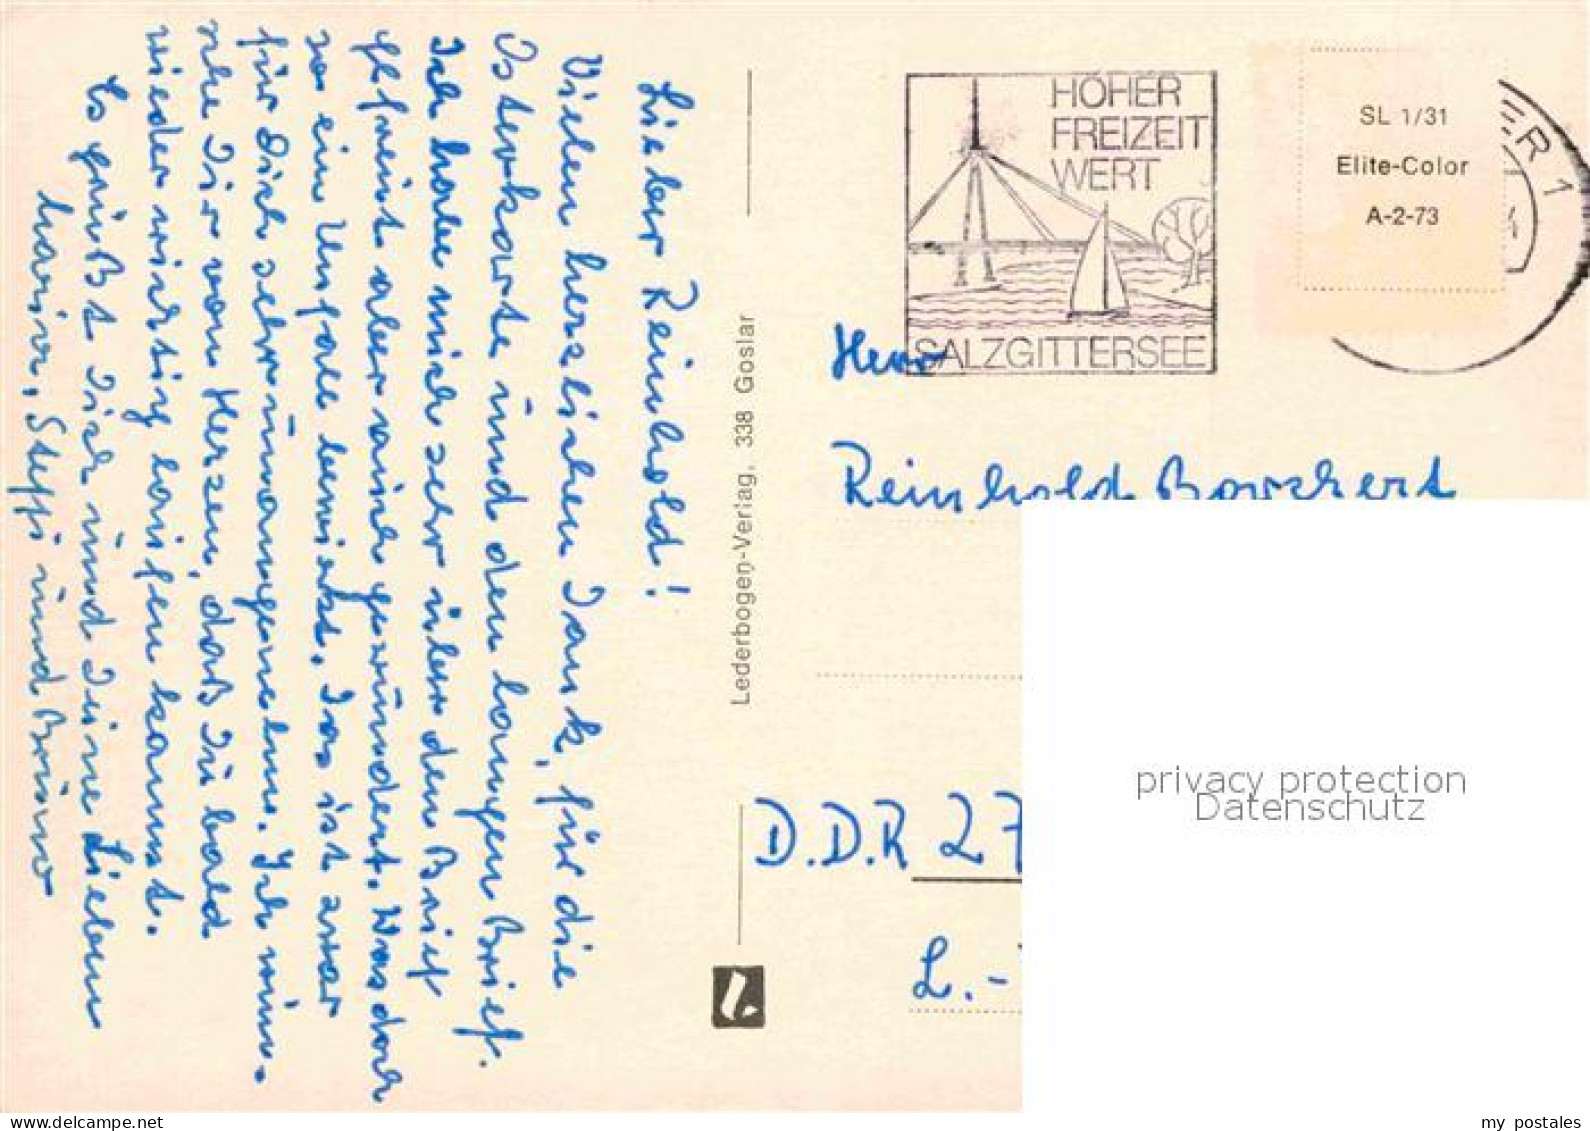 Lieber Reinhold!
Vielen herzlichen Dank, für die
Osterkarte und den langen Brief.
Ich habe mich sehr über den Brief
gefreut aber auch gewundert. Was doch
so ein Unfall bewirkt. Das ist zwar
für Dich sehr unangenehm. Ich wün-
sche Dir von Herzen, daß Du bald
wieder richtig laufen kannst.
Es grüßt Dich und Deine Lieben
Steffi und Bruno
Lederbogen-Verlag, 338 Goslar
HOHER
FREIZEIT
WERT
SALZGITTERSEE
ER 1
SL 1/31
Elite-Color
A-2-73
Herr
Reinhold Borchert
D.D.R 27
L.-
privacy protection
Datenschutz
my postales